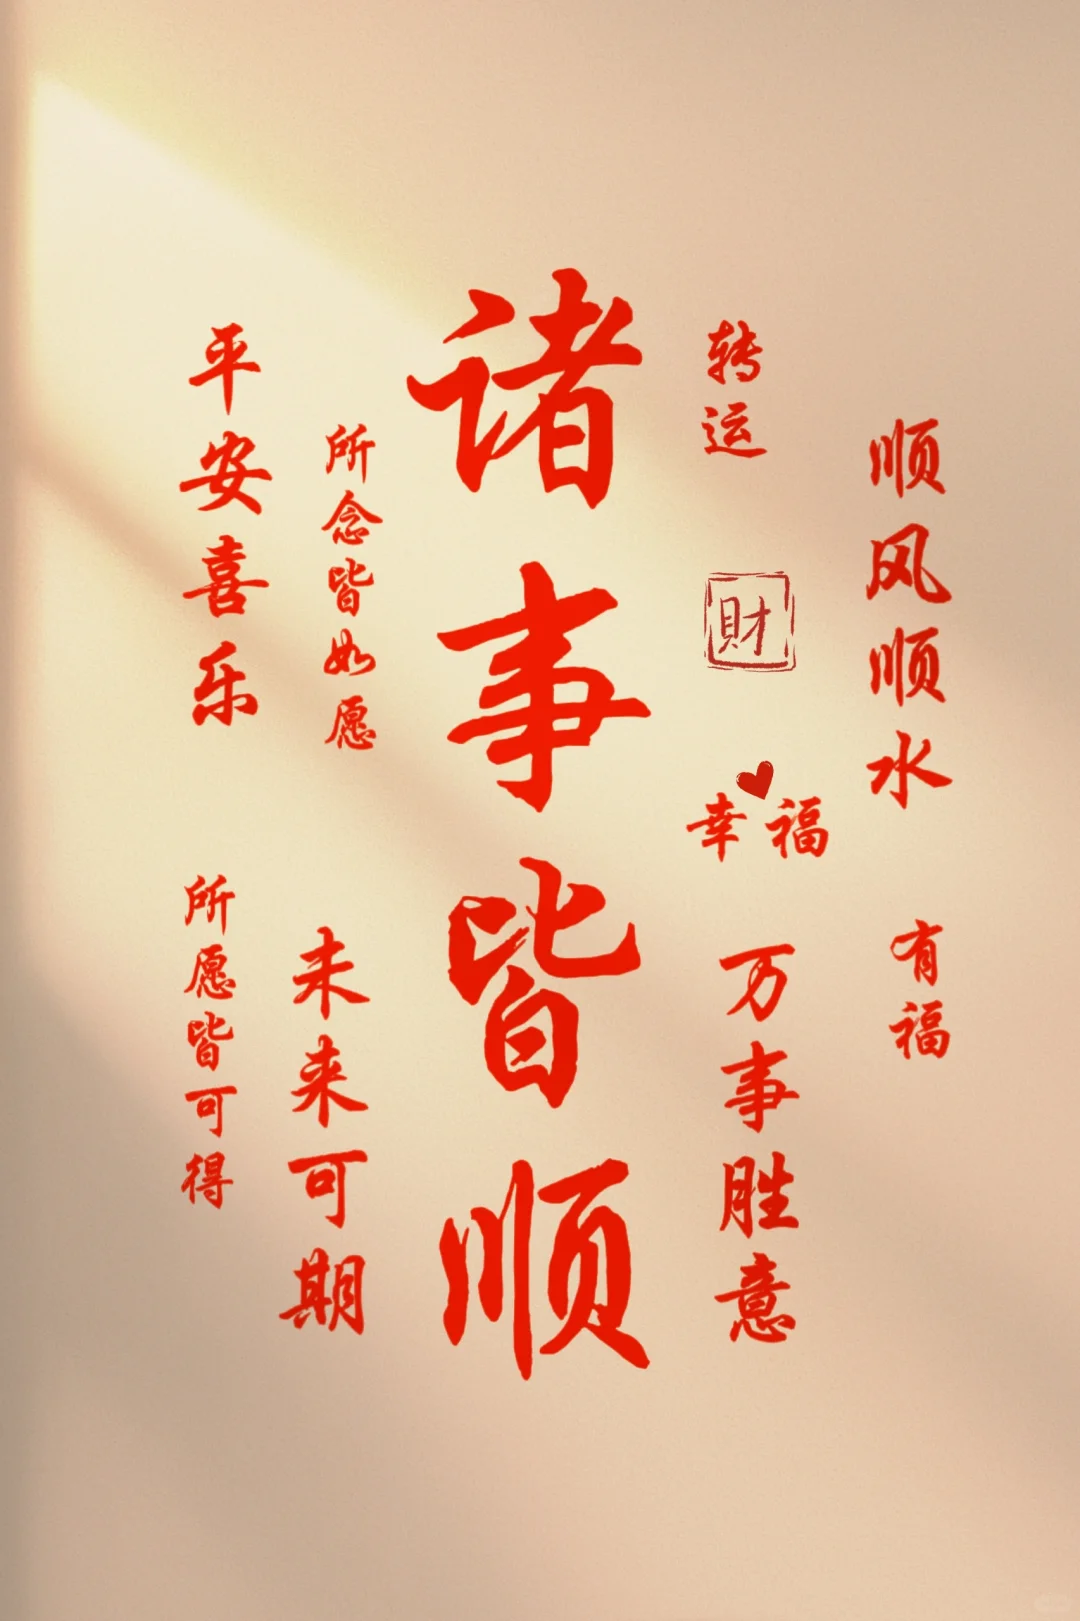 诸事皆顺
顺风顺水
有福
转运
財
幸福
万事胜意
所念皆如愿
未来可期
平安喜乐
所愿皆可得